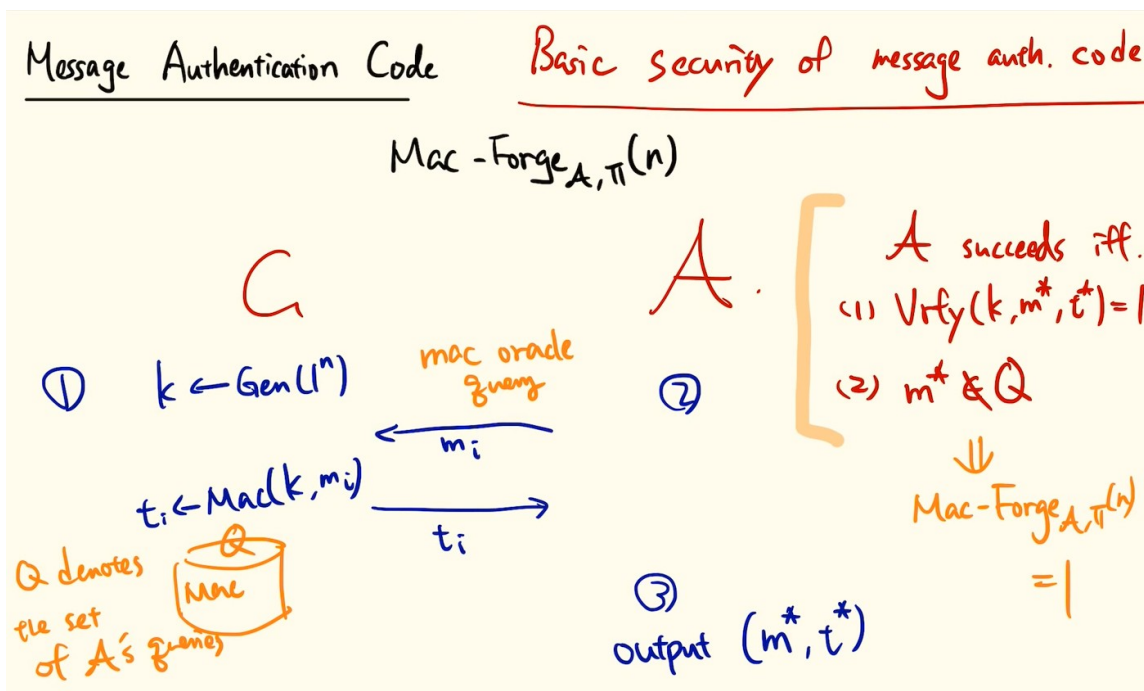 Message Authentication Code
Basic security of message auth. code
Mac-Forge_A,π(n)
C
A.
A succeeds iff.
(1) Vrfy(k,m*,t*)=1
(2) m* ∉ Q
⇓
Mac-Forge_A,π(n)
=1
① k ← Gen(1ⁿ)
mac oracle
query
②
mᵢ
tᵢ ← Mac(k,mᵢ)
tᵢ
Q
Mac
Q denotes
the set
of A's queries
③
output (m*,t*)